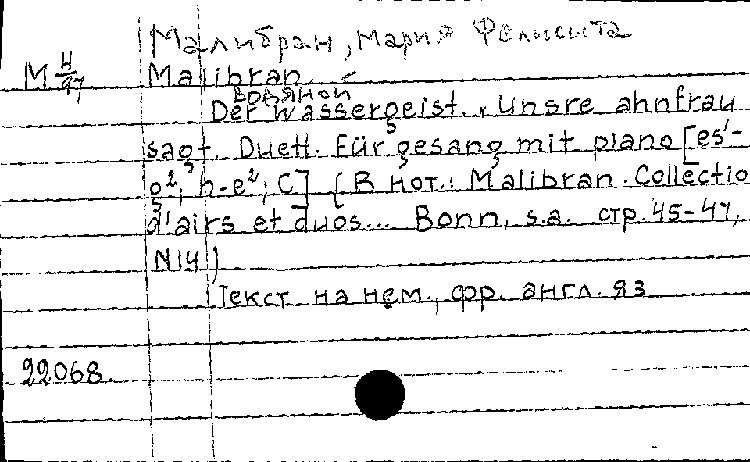 Малибран, Мария Фелисита
М 4/97 Malibran
водяной
Der Wassergeist. „Unsre ahnfrau
sagt. Duett. Für gesang mit piano [es'-
g², h-e²; C] (В нот.: Malibran. Collectio
d'airs et duos... Bonn, s.a. стр. 45-47,
N14)
Текст на нем., фр. англ. яз
22068.